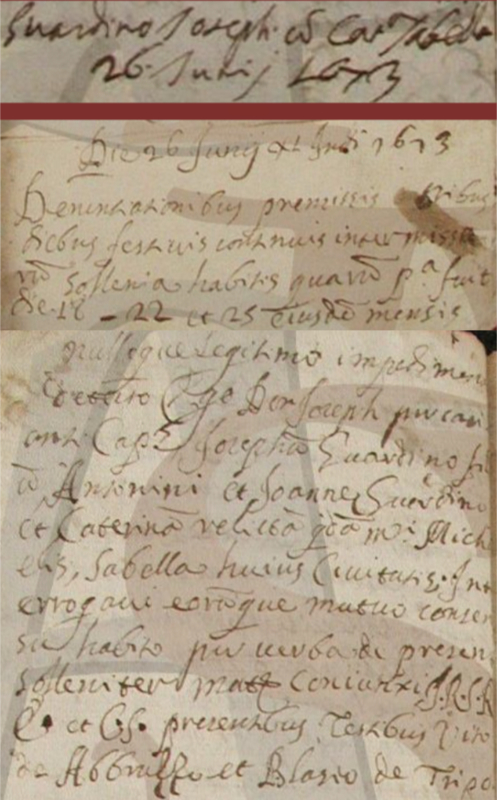 Guardino Joseph cō Cat Sabella
26 Junij 1673
Die 26 Junij xi Indi 1673
Denuntiationibus premissis tribus
diebus festivis continuis inter missa
rū sollenia habitis quarū p.ª fuit
die 18 - 22 et 25 eiusdē mensis
nulloque legitimo impedimen
detecto Ego Don Joseph
Cap.s Josephū Guardino fil
ū Antonini et Joanne Guardino
et Caterinā relictā qdā m.i Mich
elis Sabella huius Civitatis Int
errogavi eorūque mutuo consen
su habito per verba de presen
solleniter mat Coniunxi J.R.S.R
E. et C.S. presentibus Testibus Vito
de Abbruzzo et Blasio de Tripo